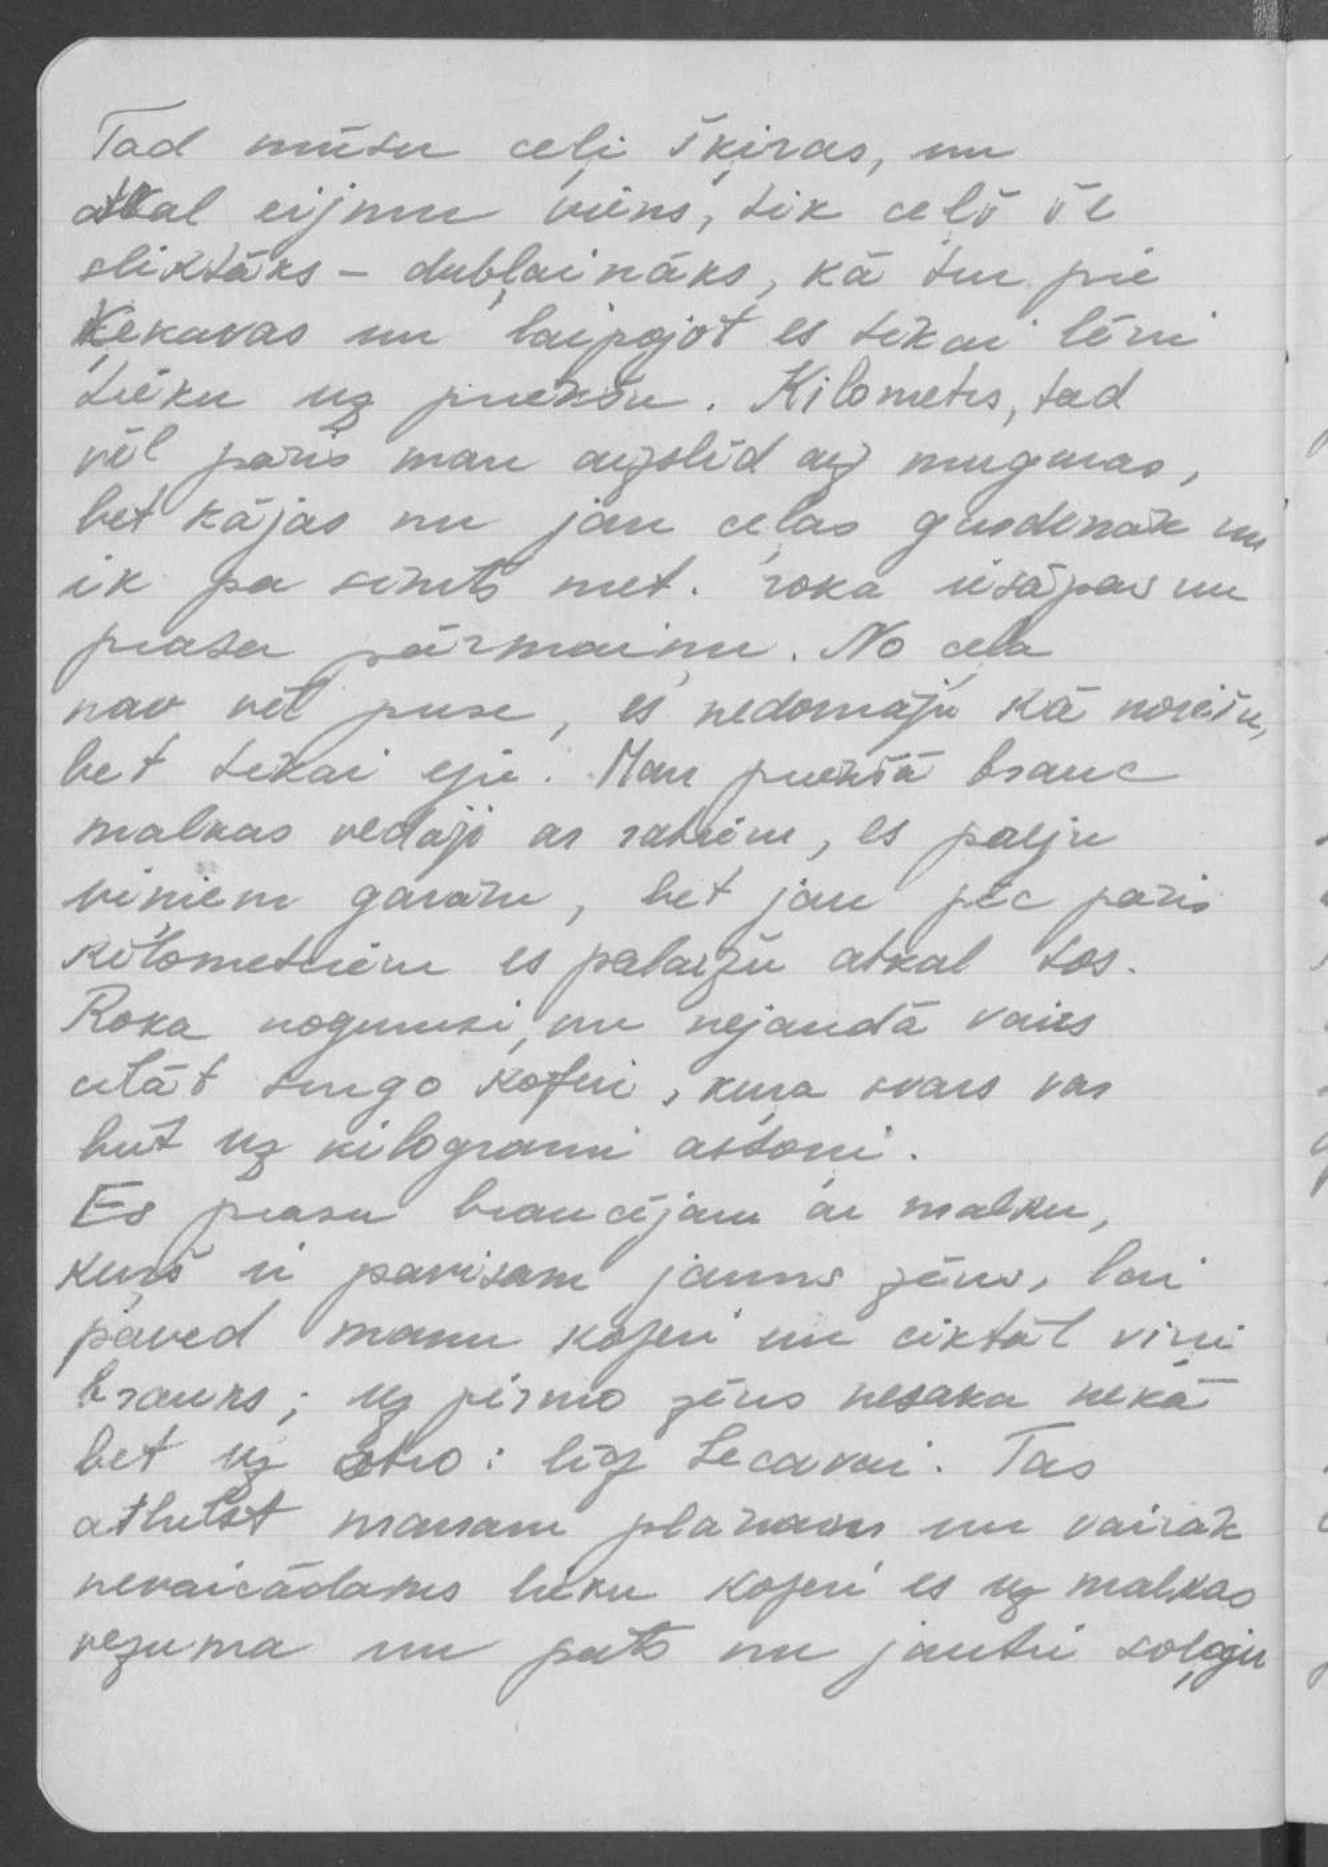 Tad mūsu ceļi šķiras, un
atkal eijmu viens, tik ceļš šē
sliktāks – dubļaināks, kā tur pie
Ķekavas un laipojot es tikai lēni
tieku uz priekšu. Kilometrs, tad
vēl pāris man aizslīd aiz muguras,
bet kājas nu jau ceļas gurdenāk un
ik pa simts met. roka iesāpas un
prasa pārmaiņu. No ceļa
nav vēl puse, es nedomāju kā noiešu,
bet tikai eju. Man priekšā brauc
malkas vedāji ar ratiem, es paeju
viņiem garām, bet jau pēc pāris
kilometriem es palaižu atkal tos.
Roka nogurusi, un nejaudā vairs
cilāt smago koferi, kura svars var
būt uz kilogrami astoņi.
Es prasu braucējam ar malku,
kuŗš ir pavisam jauns zēns, lai
paved manu koferi un ciktāl viņi
brauks; uz pirmo zēns nesaka nekā
bet uz otro: līdz Iecavai. Tas
atbilst manam planam un vairāk
nevaicādams lieku koferi es uz malkas
vezuma un pats nu jautri soļoju